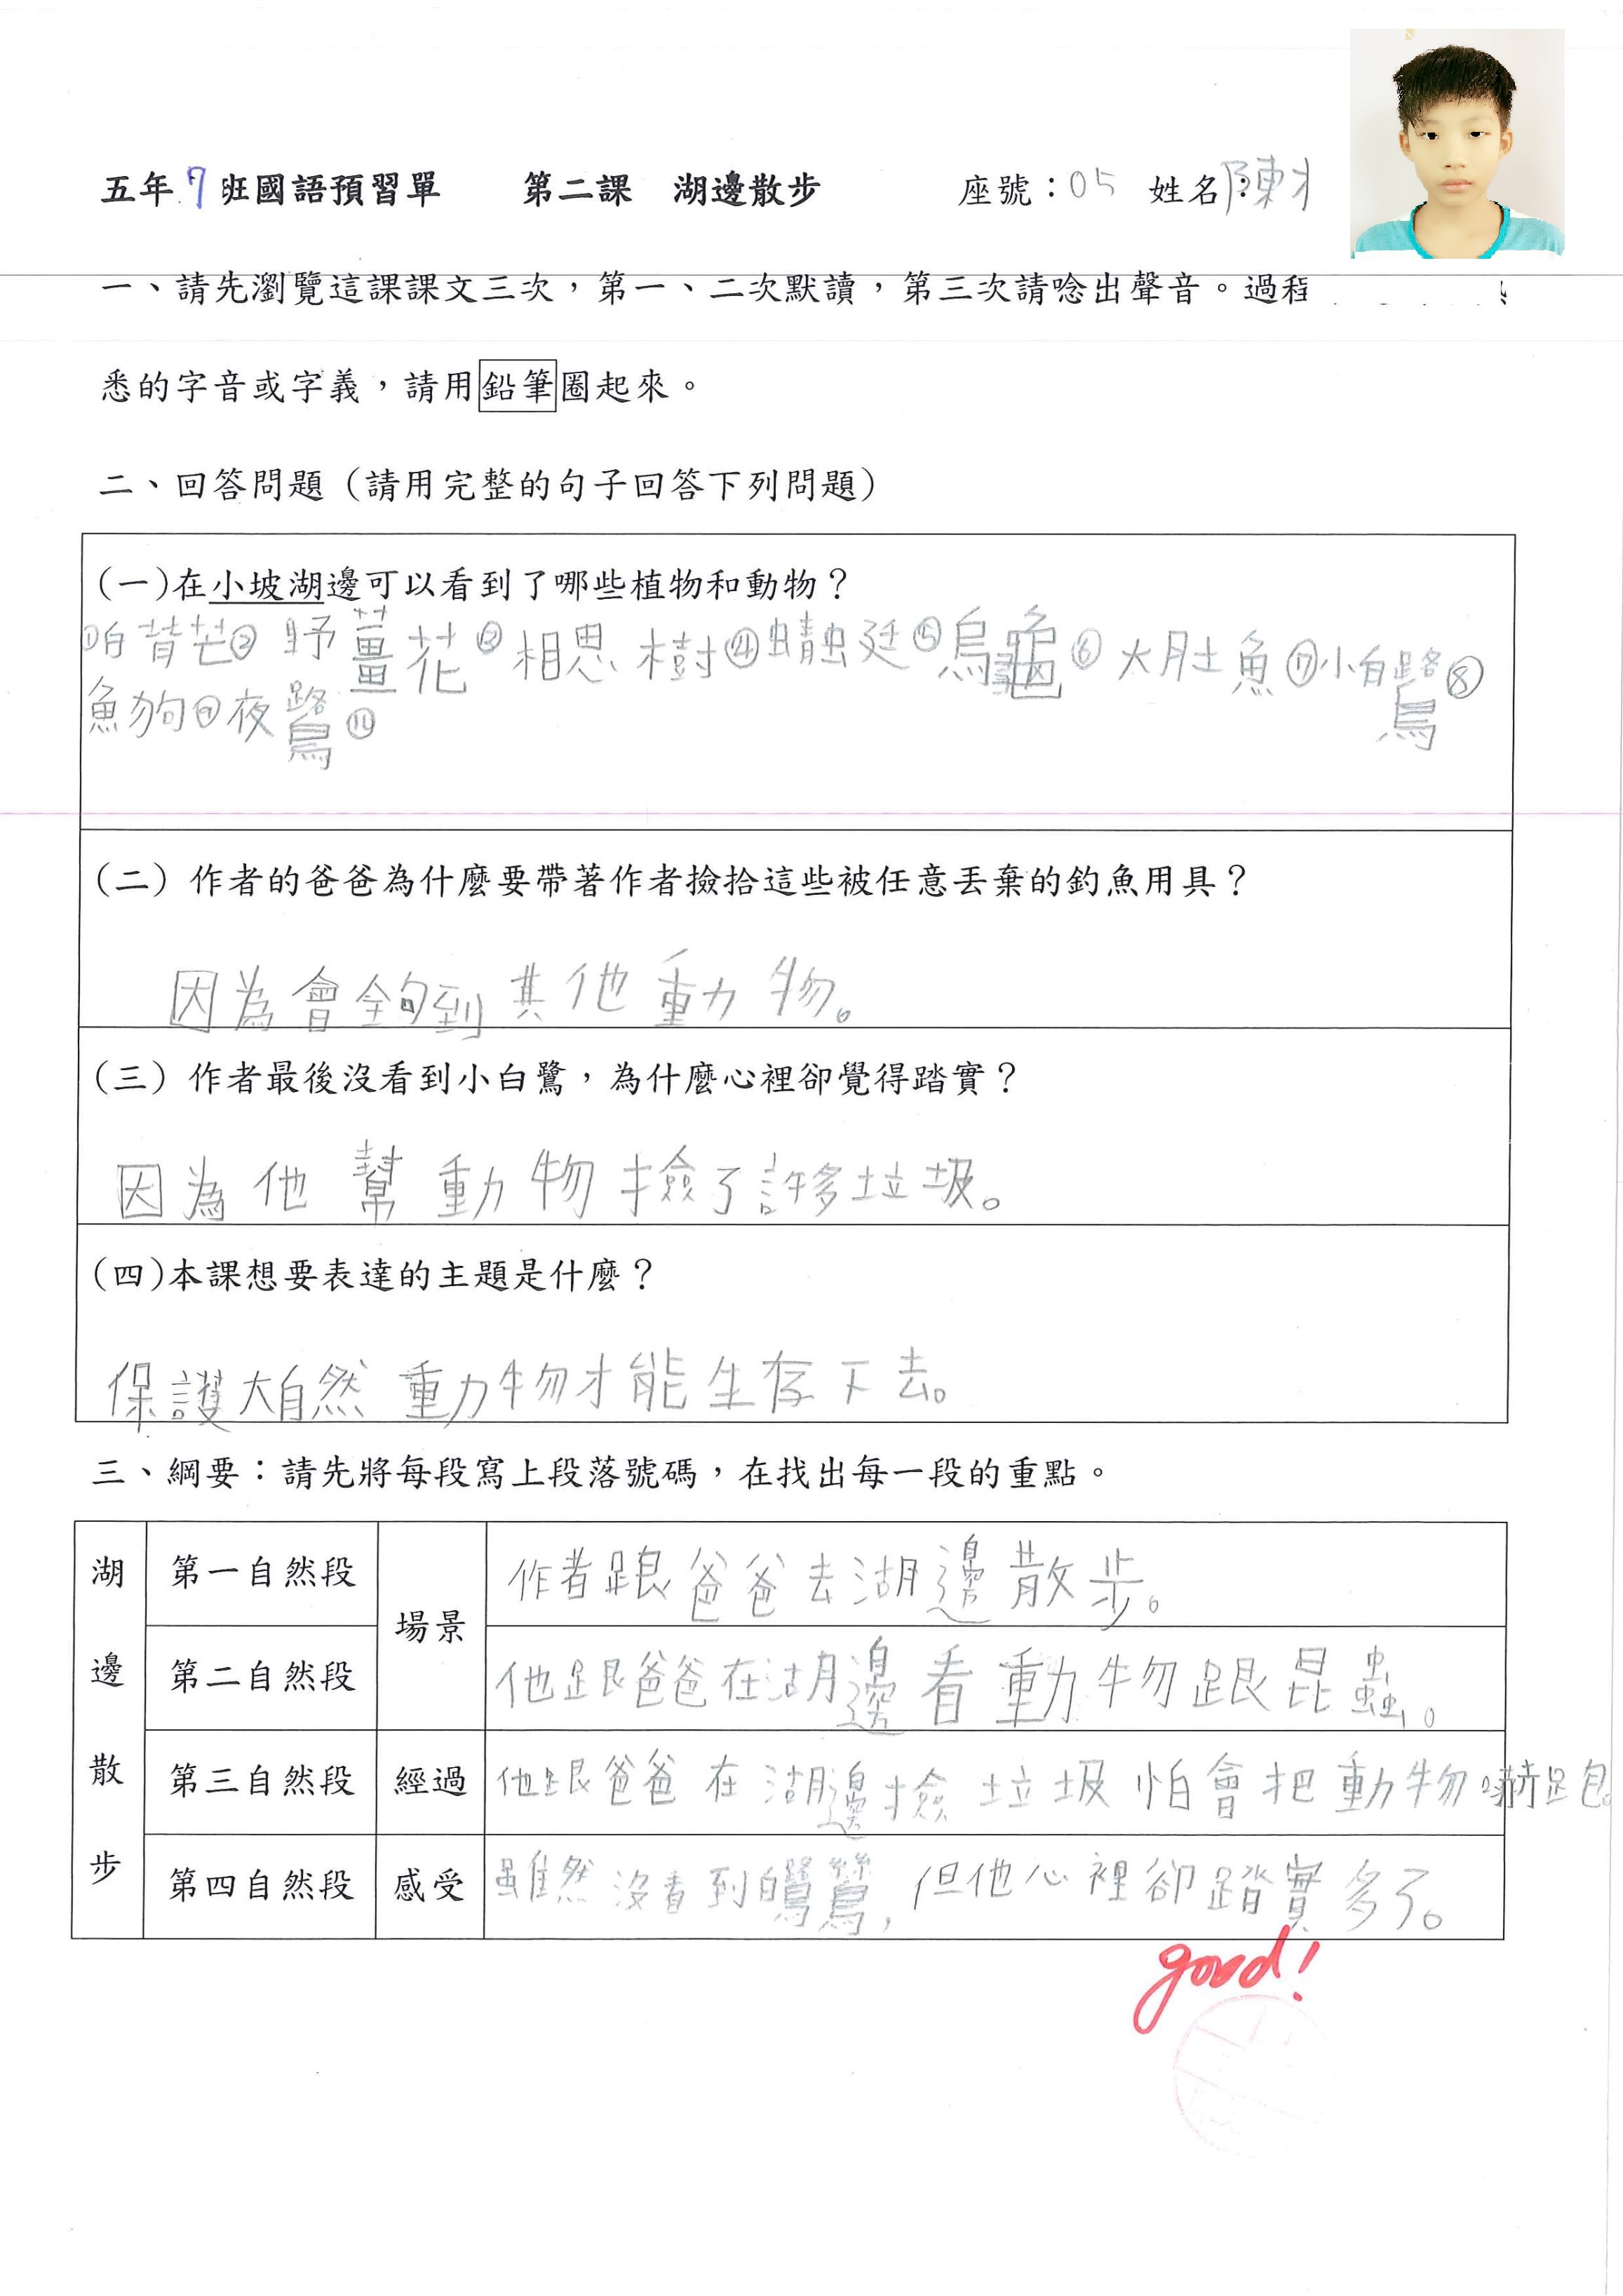 五年7班國語預習單 第二課 湖邊散步 座號：05 姓名：陳
一、請先瀏覽這課課文三次，第一、二次默讀，第三次請唸出聲音。過程
悉的字音或字義，請用鉛筆圈起來。
二、回答問題（請用完整的句子回答下列問題）
(一)在小坡湖邊可以看到了哪些植物和動物？
芒② 野薑花③相思樹④蜻蜓⑤烏龜⑥大肚魚⑦小白鷺⑧
魚狗⑨夜鷺⑩
（二）作者的爸爸為什麼要帶著作者撿拾這些被任意丟棄的釣魚用具？
因為會鉤到其他動物。
（三）作者最後沒看到小白鷺，為什麼心裡卻覺得踏實？
因為他幫動物撿了許多垃圾。
(四)本課想要表達的主題是什麼？
保護大自然動物才能生存下去。
三、綱要：請先將每段寫上段落號碼，在找出每一段的重點。
湖邊散步
第一自然段 場景 作者跟爸爸去湖邊散步。
第二自然段 他跟爸爸在湖邊看動物跟昆蟲。
第三自然段 經過 他跟爸爸在湖邊撿垃圾怕會把動物嚇跑。
第四自然段 感受 雖然沒看到白鷺鷥，但他心裡卻踏實多了。
good!